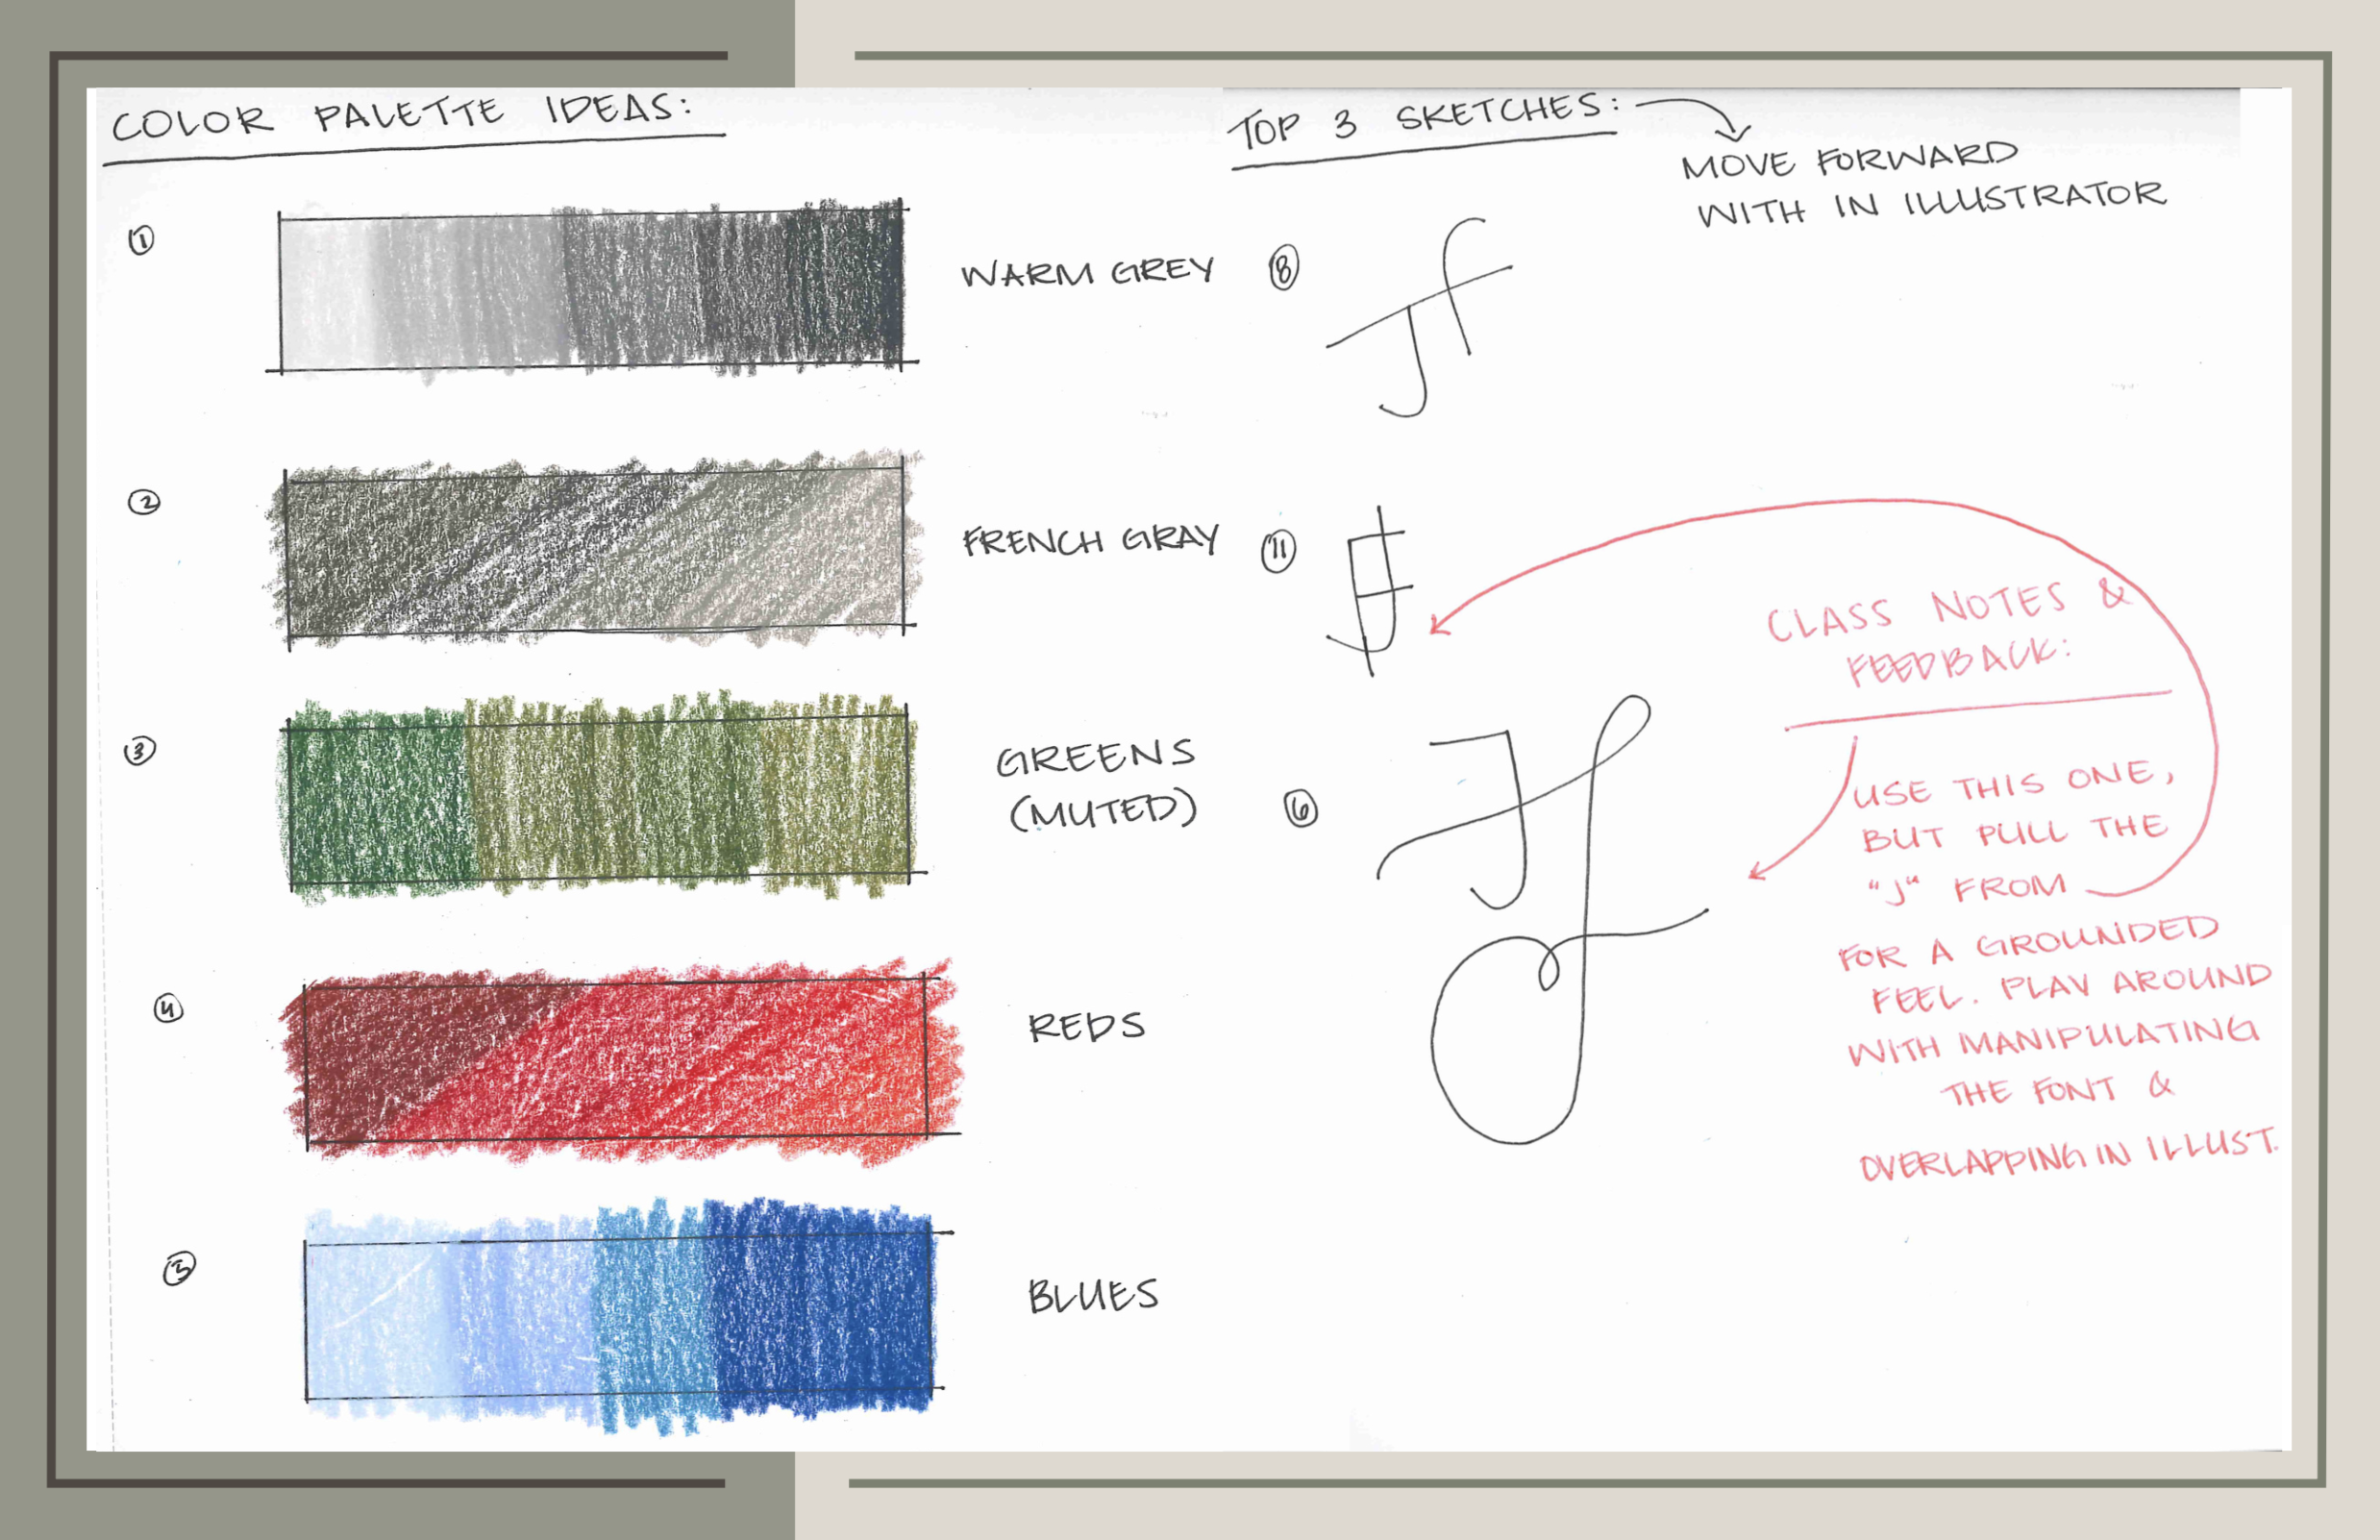 COLOR PALETTE IDEAS:
1
WARM GREY
2
FRENCH GRAY
3
GREENS
(MUTED)
4
REDS
5
BLUES
TOP 3 SKETCHES:
MOVE FORWARD
WITH IN ILLUSTRATOR
8
Jf
11
JF
6
Jf
CLASS NOTES &
FEEDBACK:
USE THIS ONE,
BUT PULL THE
"J" FROM
FOR A GROUNDED
FEEL. PLAY AROUND
WITH MANIPULATING
THE FONT &
OVERLAPPING IN ILLUST.